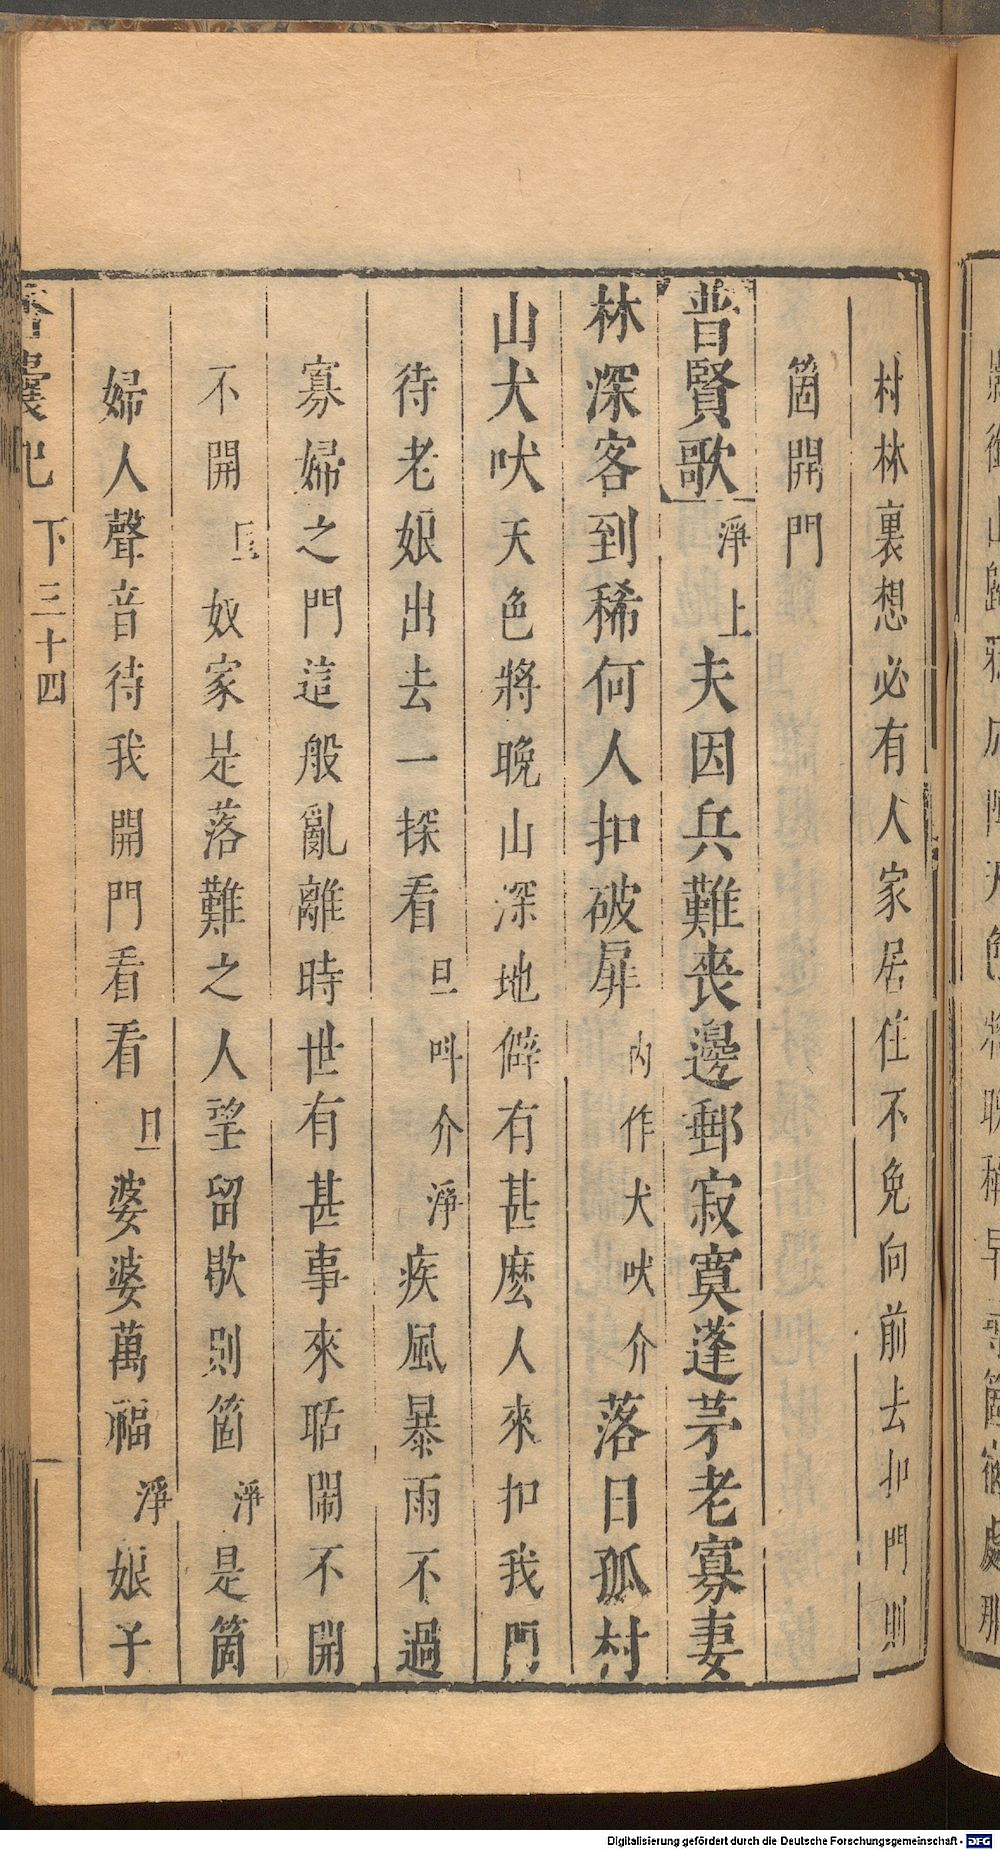 村林裏想必有人家居住不免向前去扣門則
箇開門
普賢歌 淨上夫因兵難喪邊郵寂寞蓬茅老寡妻
林深客到稀何人扣破扉 內作犬吠介 落日孤村
山犬吠天色將晚山深地僻有甚麽人來扣我門
待老娘出去一探看 旦呌介淨 疾風暴雨不過
寡婦之門這般亂離時世有甚事來聒鬧不開
不開 旦 奴家是落難之人望留歇則箇 淨 是箇
婦人聲音待我開門看看 旦 婆婆萬福 淨 娘子
香囊記 下三十四
Digitalisierung gefördert durch die Deutsche Forschungsgemeinschaft - DFG